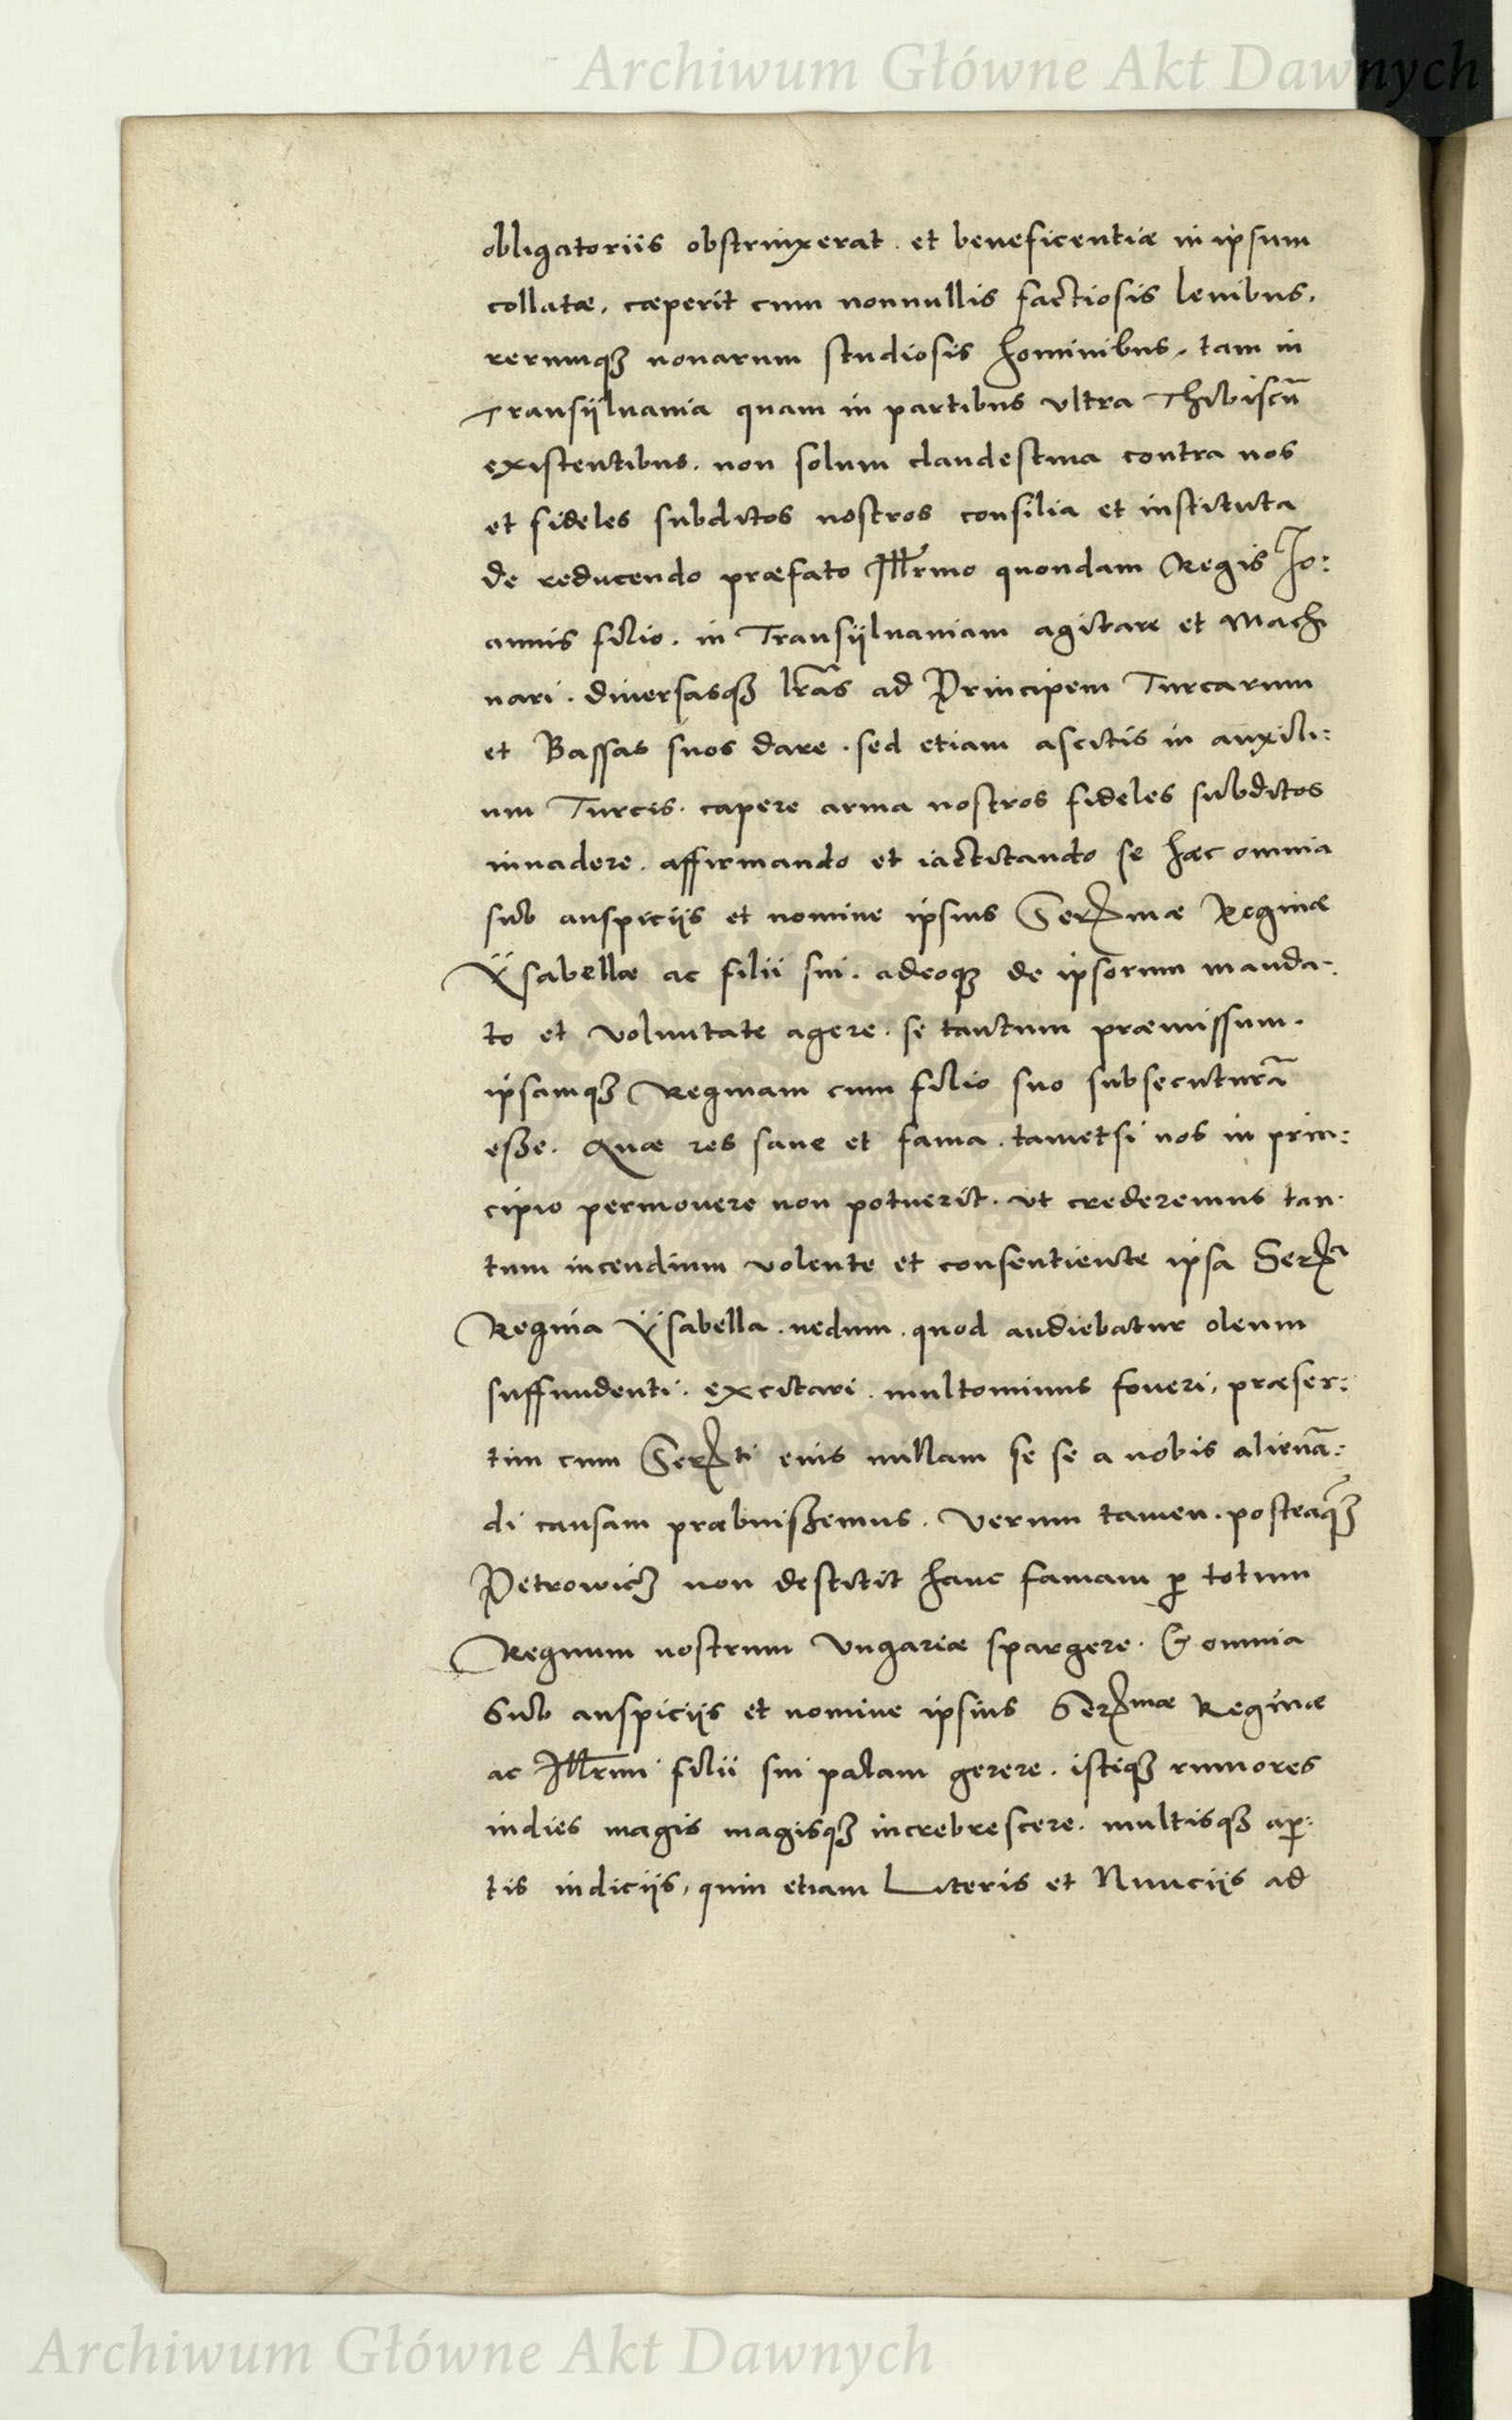 Archiwum Główne Akt Dawnych
obligatoriis obstrinxerat. et beneficentiæ in ipsum
collatæ, cæperit cum nonnullis factiosis levibus,
rerumqꝫ novarum studiosis hominibus, tam in
Transÿlvania quam in partibus ultra Thibiscū
existentibus. non solum clandestina contra nos
et fideles subditos nostros consilia et instituta
de reducendo præfato Illr̄mo quondam Regis Io:
annis filio. in Transÿlvaniam agitare et Machi
nari. diversasqꝫ lr̄as ad Principem Turcarum
et Bassas suos dare. sed etiam ascitis in auxili:
um Turcis. capere arma nostros fideles subditos
invadere. affirmando et iactitando se hæc omnia
sub auspicijs et nomine ipsius Serꝫmæ Reginæ
Ÿsabellæ ac filii sui. adeoqꝫ de ipsorum manda:
to et voluntate agere. se tantum præmissum.
ipsamqꝫ Reginam cum filio suo subsecuturā
esse. Quæ res sane et fama. tametsi nos in prin:
cipio permovere non potuerit. ut crederemus tan:
tum incendium volente et consentiente ipsa Serꝫa
Regina Ÿsabella. nedum. quod audiebatur oleum
suffundenti. excitari. multominus foveri, præser:
tim cum Serꝫti eius nullam se se a nobis alienā:
di causam præbuissemus. Verum tamen. posteaqꝫ̄
Petrowicz non destitit hanc famam ꝑ totum
Regnum nostrum Ungariæ spargere. & omnia
Sub auspicijs et nomine ipsius Serꝫmæ Reginæ
ac Illr̄mi filii sui palam gerere. istiqꝫ rumores
indies magis magisqꝫ increbrescere. multisqꝫ aꝑ:
tis indicijs, quin etiam Literis et Nuncijs ad
Archiwum Główne Akt Dawnych